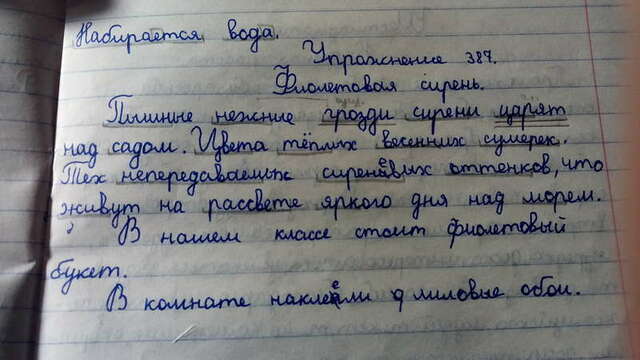 Набирается вода.
Упражнение 387.
Фиолетовая сирень.
Пышные нежние грозди сирени царят
над садом. Цвета тёплых весенних сумерек.
Тех непередаваемых сиреневых оттенков, что
живут на рассвете яркого дня над морем.
В нашем классе стоит фиолетовый
букет.
В комнате наклеели лиловые обои.